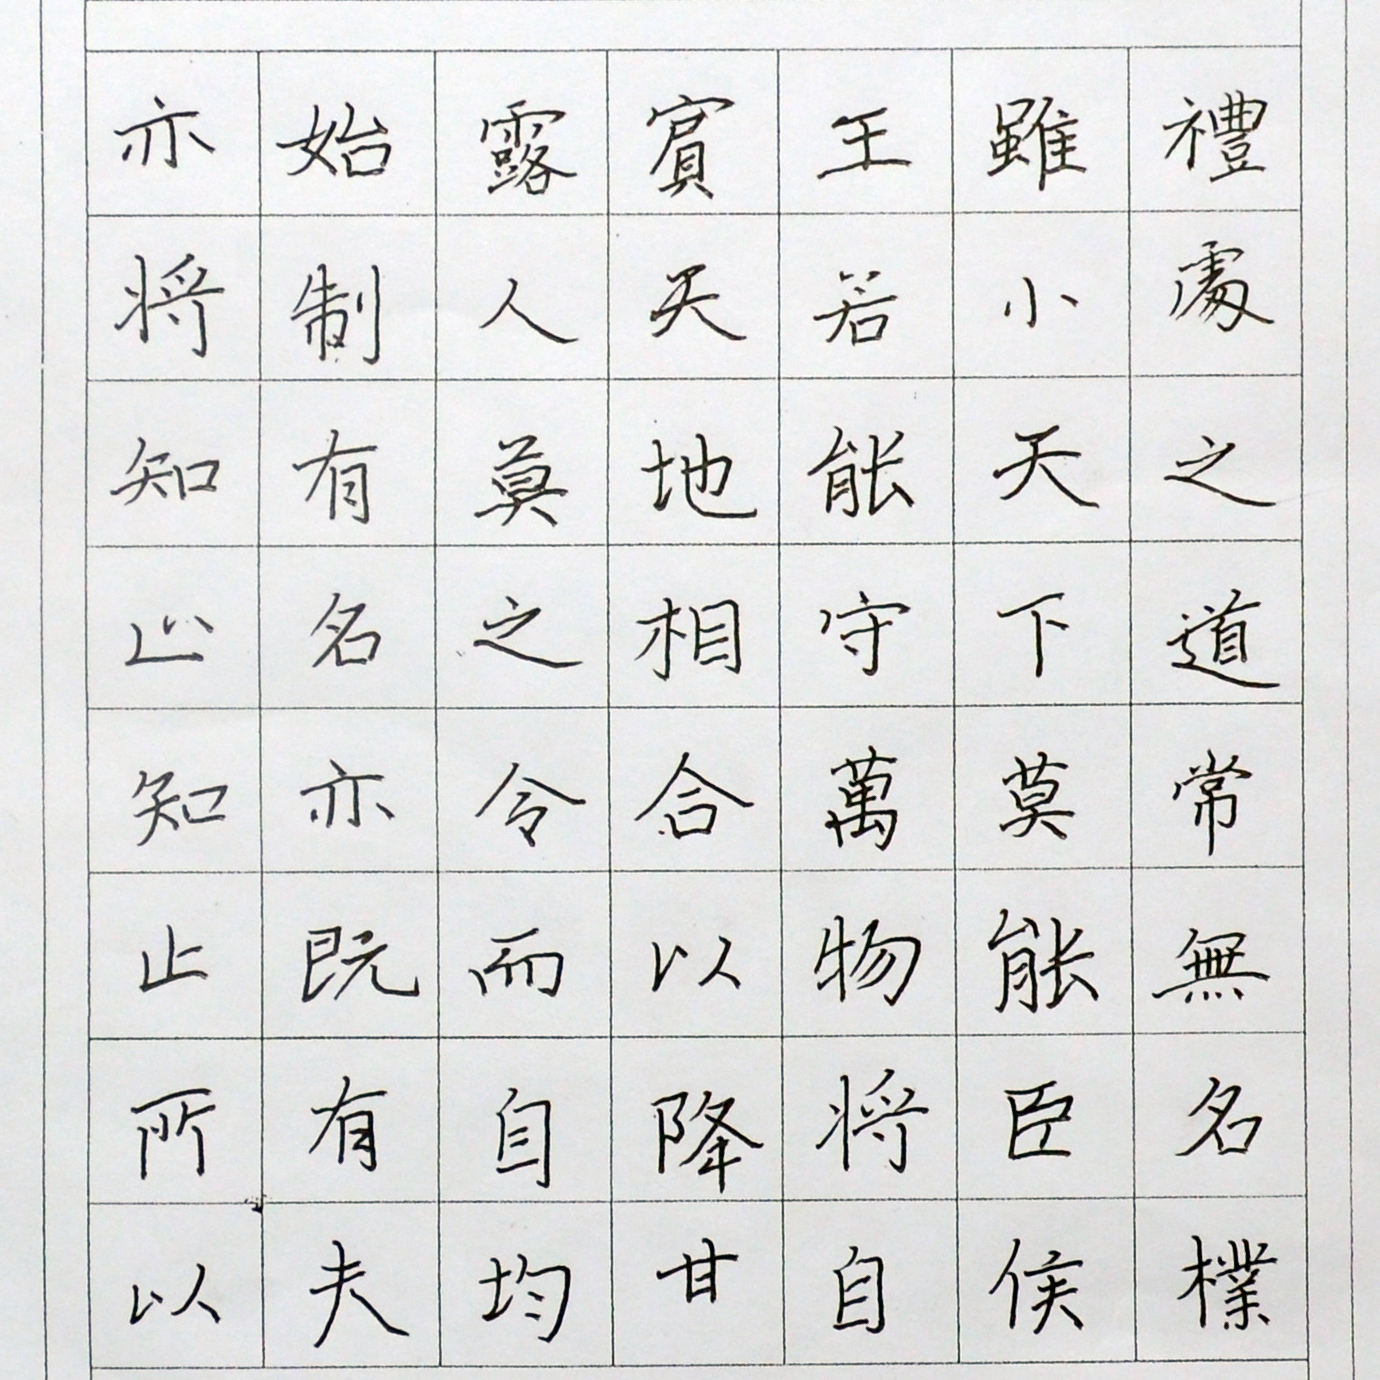 禮處之道常無名樸
雖小天下莫能臣侯
王若能守萬物将自
賓天地相合以降甘
露人莫之令而自均
始制有名亦既有夫
亦将知止知止所以